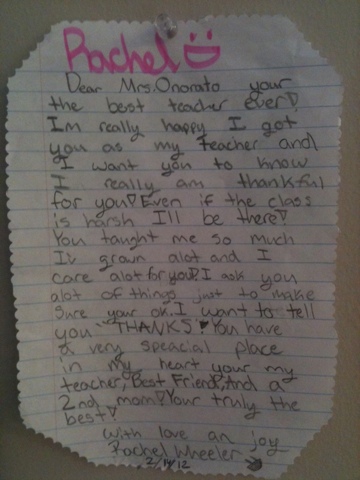 Rachel
Dear Mrs. Onorato your
the best teacher ever!
Im really happy I got
you as my Teacher and
I want you to know
I really am thankful
for you! Even if the class
is harsh I'll be there!
You taught me so much
Iv grown alot and I
care alot for you! I ask you
alot of things just to make
sure your ok. I want to tell
you THANKS! You have
a very speacial place
in my heart your my
teacher, Best Friend, And a
2nd mom! Your truly the
best!
With love an joy
Rachel Wheeler
2/14/12